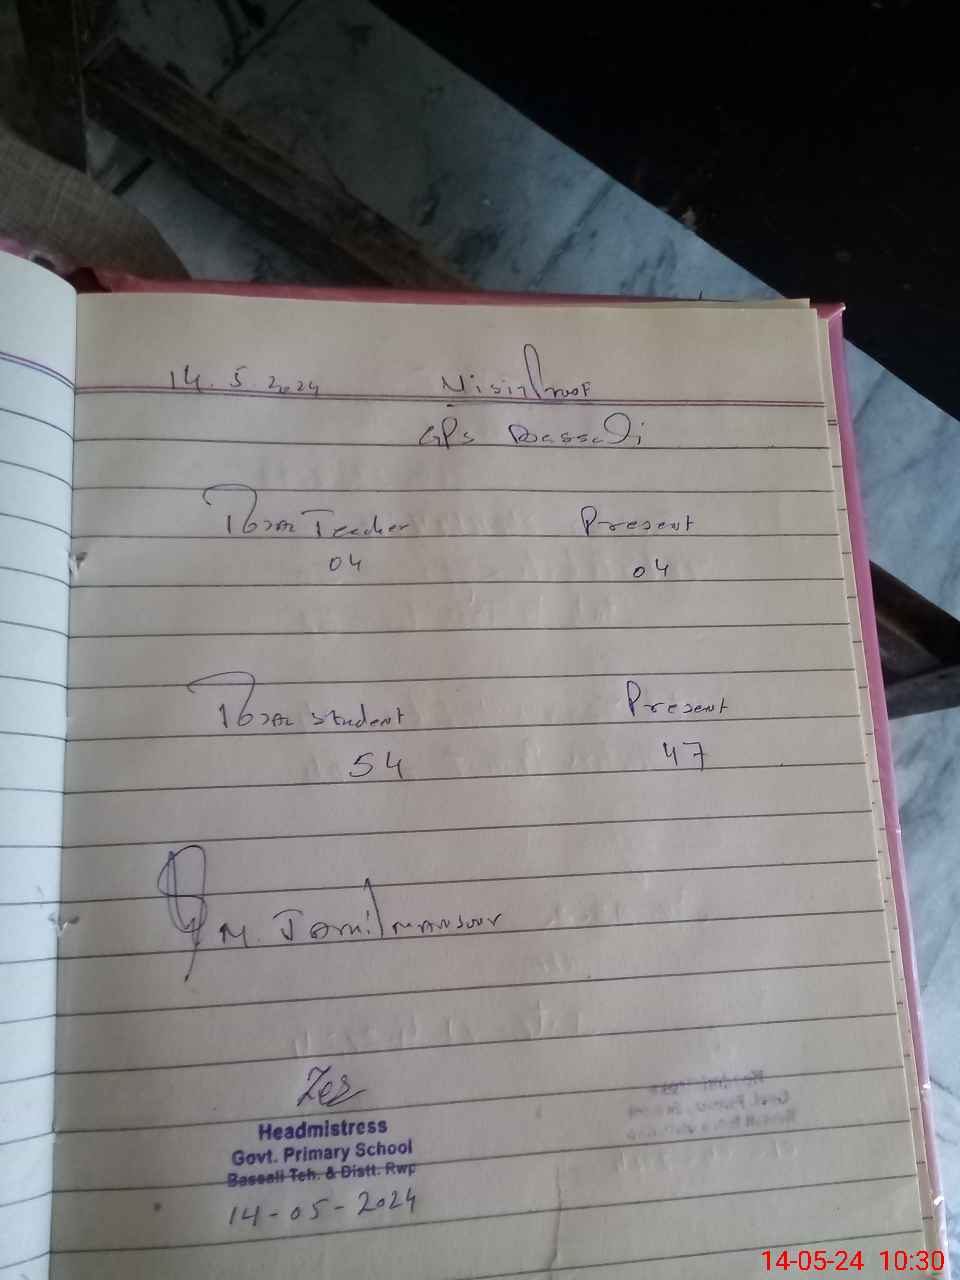 14.5.2024
GPs Bassali
Total Teacher Present
04 04
Total Student Present
54 47
M. Jamil mansoor
Headmistress
Govt. Primary School
Bassali Teh. & Distt. Rwp
14-05-2024
14-05-24 10:30